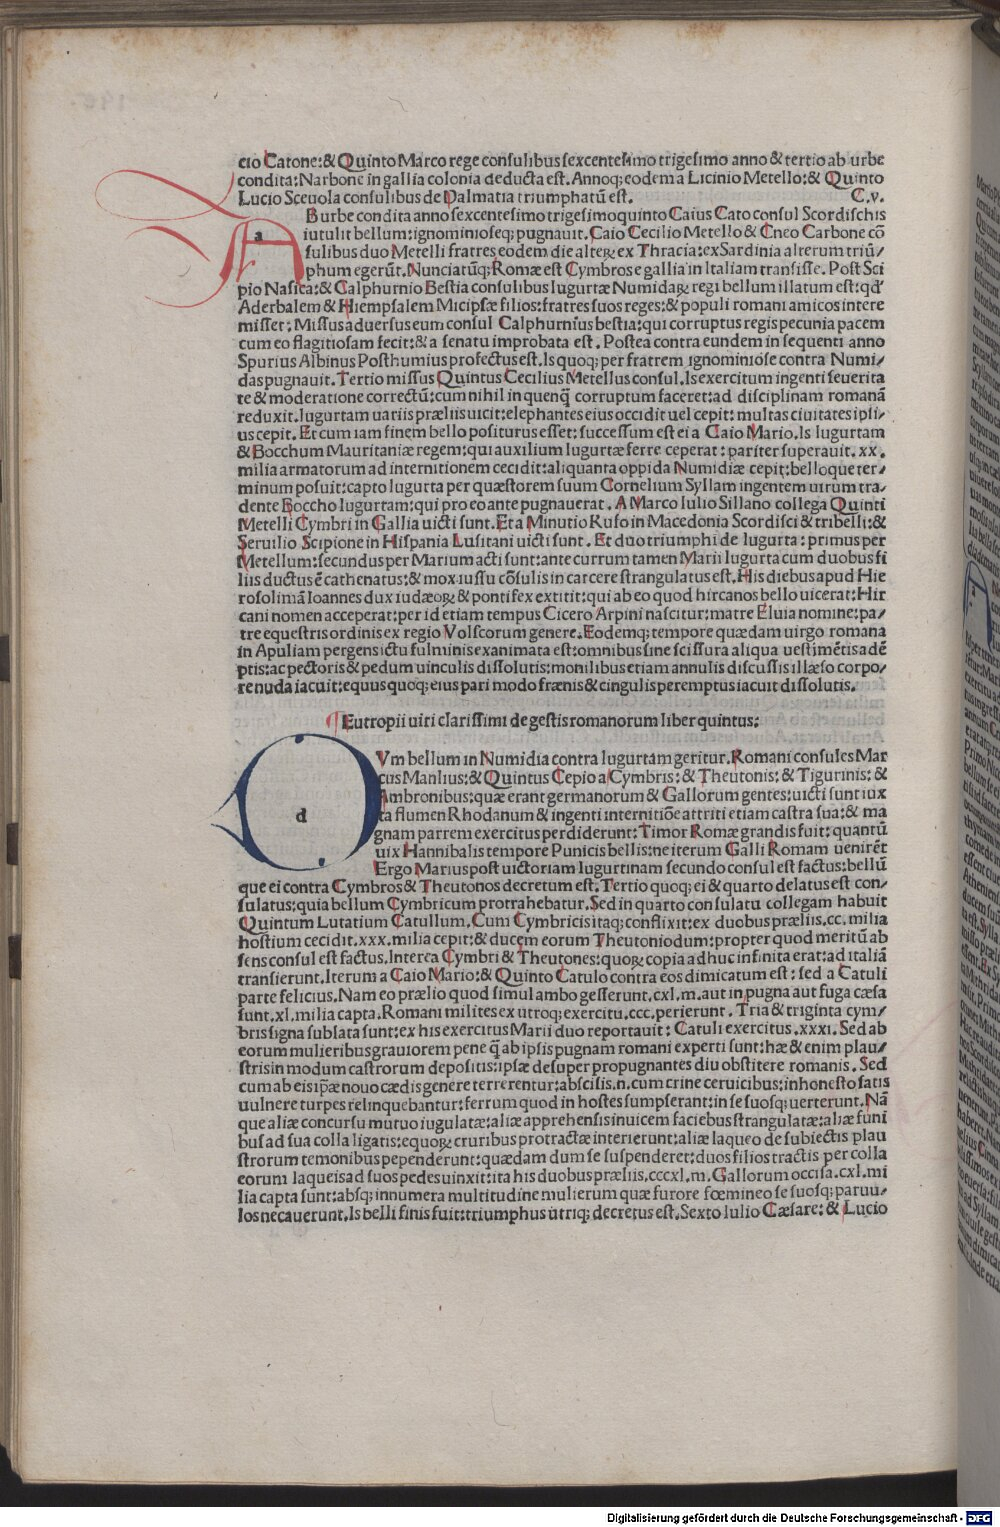 cio Catone:& Quinto Marco rege consulibus sexcentesimo trigesimo anno & tertio ab urbe
condita: Narbone in gallia colonia deducta est. Annoq; eodem a Licinio Metello: & Quinto
Lucio Sceuola consulibus de Dalmatia triumphatū est. C.v.
a B urbe condita anno sexcentesimo trigesimoquinto Caius Cato consul Scordischis
iutulit bellum: ignominioseq; pugnauit. Caio Cecilio Metello & Cneo Carbone cō
sulibus duo Metelli fratres eodem die alteꝝ ex Thracia: ex Sardinia alterum triū/
phum egerūt. Nunciatūq; Romæ est Cymbros e gallia in Italiam transisse. Post Sci
pio Nasica: & Calphurnio Bestia consulibus Iugurtæ Numidaꝝ regi bellum illatum est: qd'
Aderbalem & Hiempsalem Micipsæ filios: fratres suos reges: & populi romani amicos intere
misset: Missus aduersus eum consul Calphurnius bestia: qui corruptus regis pecunia pacem
cum eo flagitiosam fecit: & a senatu improbata est. Postea contra eundem in sequenti anno
Spurius Albinus Posthumius profectus est. Is quoq; per fratrem ignominiose contra Numi/
das pugnauit. Tertio missus Quintus Cecilius Metellus consul. Is exercitum ingenti seuerita
te & moderatione correctū: cum nihil in quenq̄ corruptum faceret: ad disciplinam romanā
reduxit. Iugurtam uariis præliis uicit: elephantes eius occidit uel cepit: multas ciuitates ipsi/
us cepit. Et cum iam finem bello positurus esset: successum est ei a Caio Mario. Is Iugurtam
& Bocchum Mauritaniæ regem: qui auxilium Iugurtæ ferre ceperat: pariter superauit. xx.
milia armatorum ad internitionem cecidit: aliquanta oppida Numidiæ cepit: belloque ter/
minum posuit: capto Iugurta per quæstorem suum Cornelium Syllam ingentem uirum tra/
dente Boccho Iugurtam: qui pro eo ante pugnauerat. A Marco Iulio Sillano collega Quinti
Metelli Cymbri in Gallia uicti sunt. Et a Minutio Rufo in Macedonia Scordisci & tribelli: &
Seruilio Scipione in Hispania Lusitani uicti sunt. Et duo triumphi de Iugurta: primus per
Metellum: secundus per Marium acti sunt: ante currum tamen Marii Iugurta cum duobus fi
liis ductus ē cathenatus: & mox iussu cōsulis in carcere strangulatus est. His diebus apud Hie
rosolimā Ioannes dux iudæoꝝ & pontifex extitit: qui ab eo quod hircanos bello uicerat: Hir
cani nomen acceperat: per id etiam tempus Cicero Arpini nascitur: matre Eluia nomine: pa/
tre equestris ordinis ex regio Volscorum genere. Eodemq; tempore quædam uirgo romana
in Apuliam pergens ictu fulminis exanimata est: omnibus sine scissura aliqua uestimētis adē
ptis: ac pectoris & pedum uinculis dissolutis: monilibus etiam annulis discussis illæso corpo/
re nuda iacuit: equus quoq; eius pari modo frænis & cingulis peremptus iacuit dissolutis.
¶ Eutropii uiri clarissimi de gestis romanorum liber quintus:
d Vm bellum in Numidia contra Iugurtam geritur. Romani consules Mar
cus Manlius: & Quintus Cepio a Cymbris: & Theutonis: & Tigurinis: &
Ambronibus: quæ erant germanorum & Gallorum gentes: uicti sunt iux
ta flumen Rhodanum & ingenti internitiōe attriti etiam castra sua: & ma
gnam parrem exercitus perdiderunt: Timor Romæ grandis fuit: quantū
uix Hannibalis tempore Punicis bellis: ne iterum Galli Romam uenirēt
Ergo Marius post uictoriam Iugurtinam secundo consul est factus: bellū
que ei contra Cymbros & Theutonos decretum est. Tertio quoq; ei & quarto delatus est con/
sulatus: quia bellum Cymbricum protrahebatur. Sed in quarto consulatu collegam habuit
Quintum Lutatium Catullum. Cum Cymbricis itaq; conflixit: ex duobus præliis. cc. milia
hostium cecidit. xxx. milia cepit: & ducem eorum Theutoniodum: propter quod meritū ab
sens consul est factus. Interea Cymbri & Theutones: quoꝝ copia adhuc infinita erat: ad italiā
transierunt. Iterum a Caio Mario: & Quinto Catulo contra eos dimicatum est: sed a Catuli
parte felicius. Nam eo prælio quod simul ambo gesserunt. cxl. m. aut in pugna aut fuga cæsa
sunt. xl. milia capta. Romani milites ex utroq; exercitu. ccc. perierunt. Tria & triginta cym/
bris signa sublata sunt: ex his exercitus Marii duo reportauit: Catuli exercitus. xxxi. Sed ab
eorum mulieribus grauiorem pene q̄ ab ipsis pugnam romani experti sunt: hæ & enim plau/
stris in modum castrorum depositis: ipsæ desuper propugnantes diu obstitere romanis. Sed
cum ab eis ip̄æ nouo cædis genere terrerentur: abscisis. n. cum crine ceruicibus: inhonesto satis
uulnere turpes relinquebantur: ferrum quod in hostes sumpserant: in se suosq; uerterunt. Nā
que aliæ concursu mutuo iugulatæ: aliæ apprehensis inuicem faciebus strangulatæ: aliæ funi
bus ad sua colla ligatis: equoꝝ cruribus protractæ interierunt: aliæ laqueo de subiectis plau
strorum temonibus pependerunt: quædam dum se suspenderet: duos filios tractis per colla
eorum laqueis ad suos pedes uinxit: ita his duobus præliis. cccxl. m. Gallorum occisa. cxl. mi
lia capta sunt: absq; innumera multitudine mulierum quæ furore fœmineo se suosq; paruu/
los necauerunt. Is belli finis fuit: triumphus utriq; decretus est. Sexto Iulio Cæsare: & Lucio
Digitalisierung gefördert durch die Deutsche Forschungsgemeinschaft - DFG